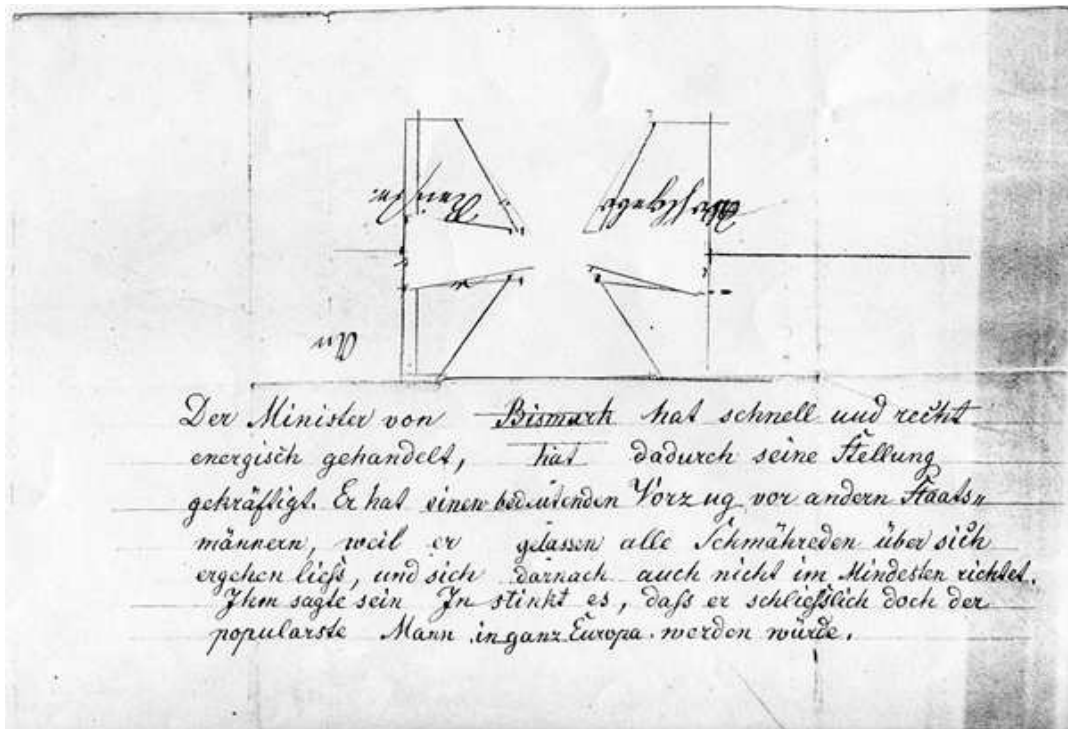 An
Der Minister von Bismark hat schnell und recht
energisch gehandelt, hat dadurch seine Stellung
gekräftigt. Er hat einen bedeutenden Vorzug vor andern Staats„
männern, weil er gelassen alle Schmähreden über sich
ergehen ließ, und sich darnach auch nicht im Mindesten richtet.
Ihm sagte sein Instinkt es, daß er schließlich doch der
popularste Mann in ganz Europa werden würde.